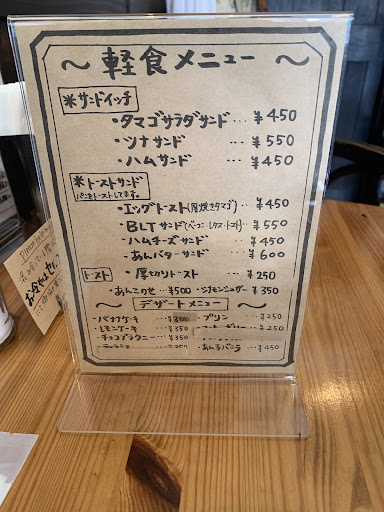 ～ 軽食メニュー ～
※サンドイッチ
・タマゴサラダサンド … ¥450
・ツナサンド … ¥550
・ハムサンド … ¥450
※トーストサンド
パンをトーストしてます。
・エッグトースト(厚焼きタマゴ) ¥450
・BLTサンド(ベーコン・レタス・トマト) ¥550
・ハムチーズサンド ¥450
・あんバターサンド ¥600
トースト ・厚切りトースト … ¥250
・あんこのせ … ¥500 ・シナモンシュガー … ¥350
～ デザートメニュー ～
・バナナケーキ … ¥300 ・プリン … ¥250
・レモンケーキ … ¥350 ¥250
・チョコブラウニー … ¥350
・あんこバニラ … ¥450
お食事は